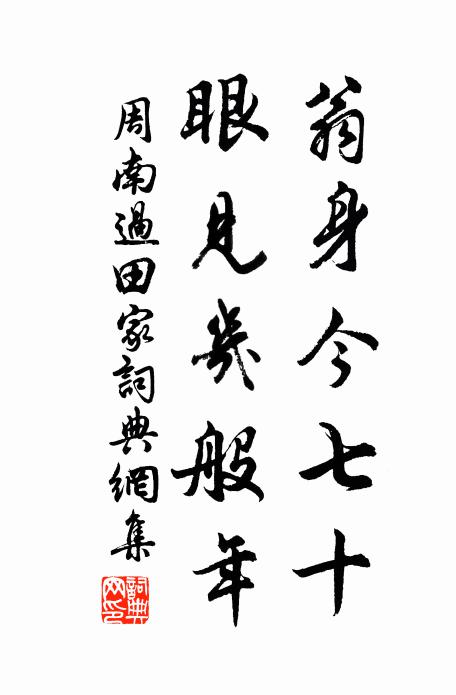 翁身今七十
眼見幾般年
周南過田家詞典網集
詞典網印